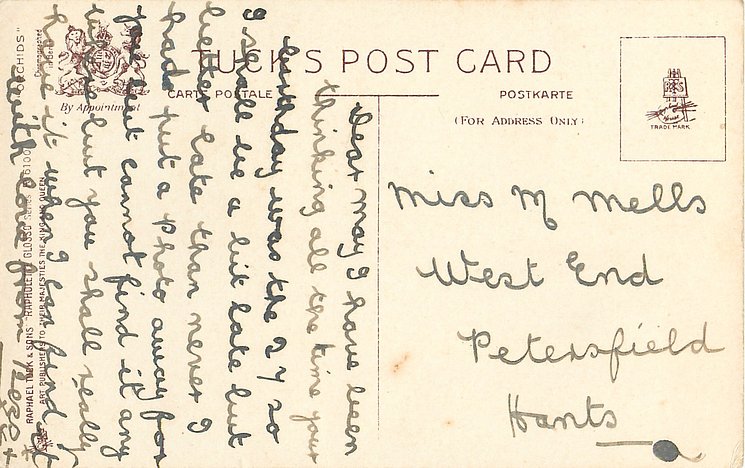 TUCK'S POST CARD
CARTE POSTALE
POSTKARTE
(FOR ADDRESS ONLY)
By Appointment
TRADE MARK
"ORCHIDS"
Chromographed
RAPHAEL TUCK & SONS' "RAPHOLETTE" GLOSSO
ART PUBLISHERS TO THEIR MAJESTIES THE KING AND QUEEN
Dear May I have been
thinking all the time your
birthday was the 27 so
I shall be a bit late but
better late than never I
had put a Photo away for
you but cannot find it any
but you shall really
have it when I can find it
with love from
Miss M Mells
West End
Petersfield
Hants